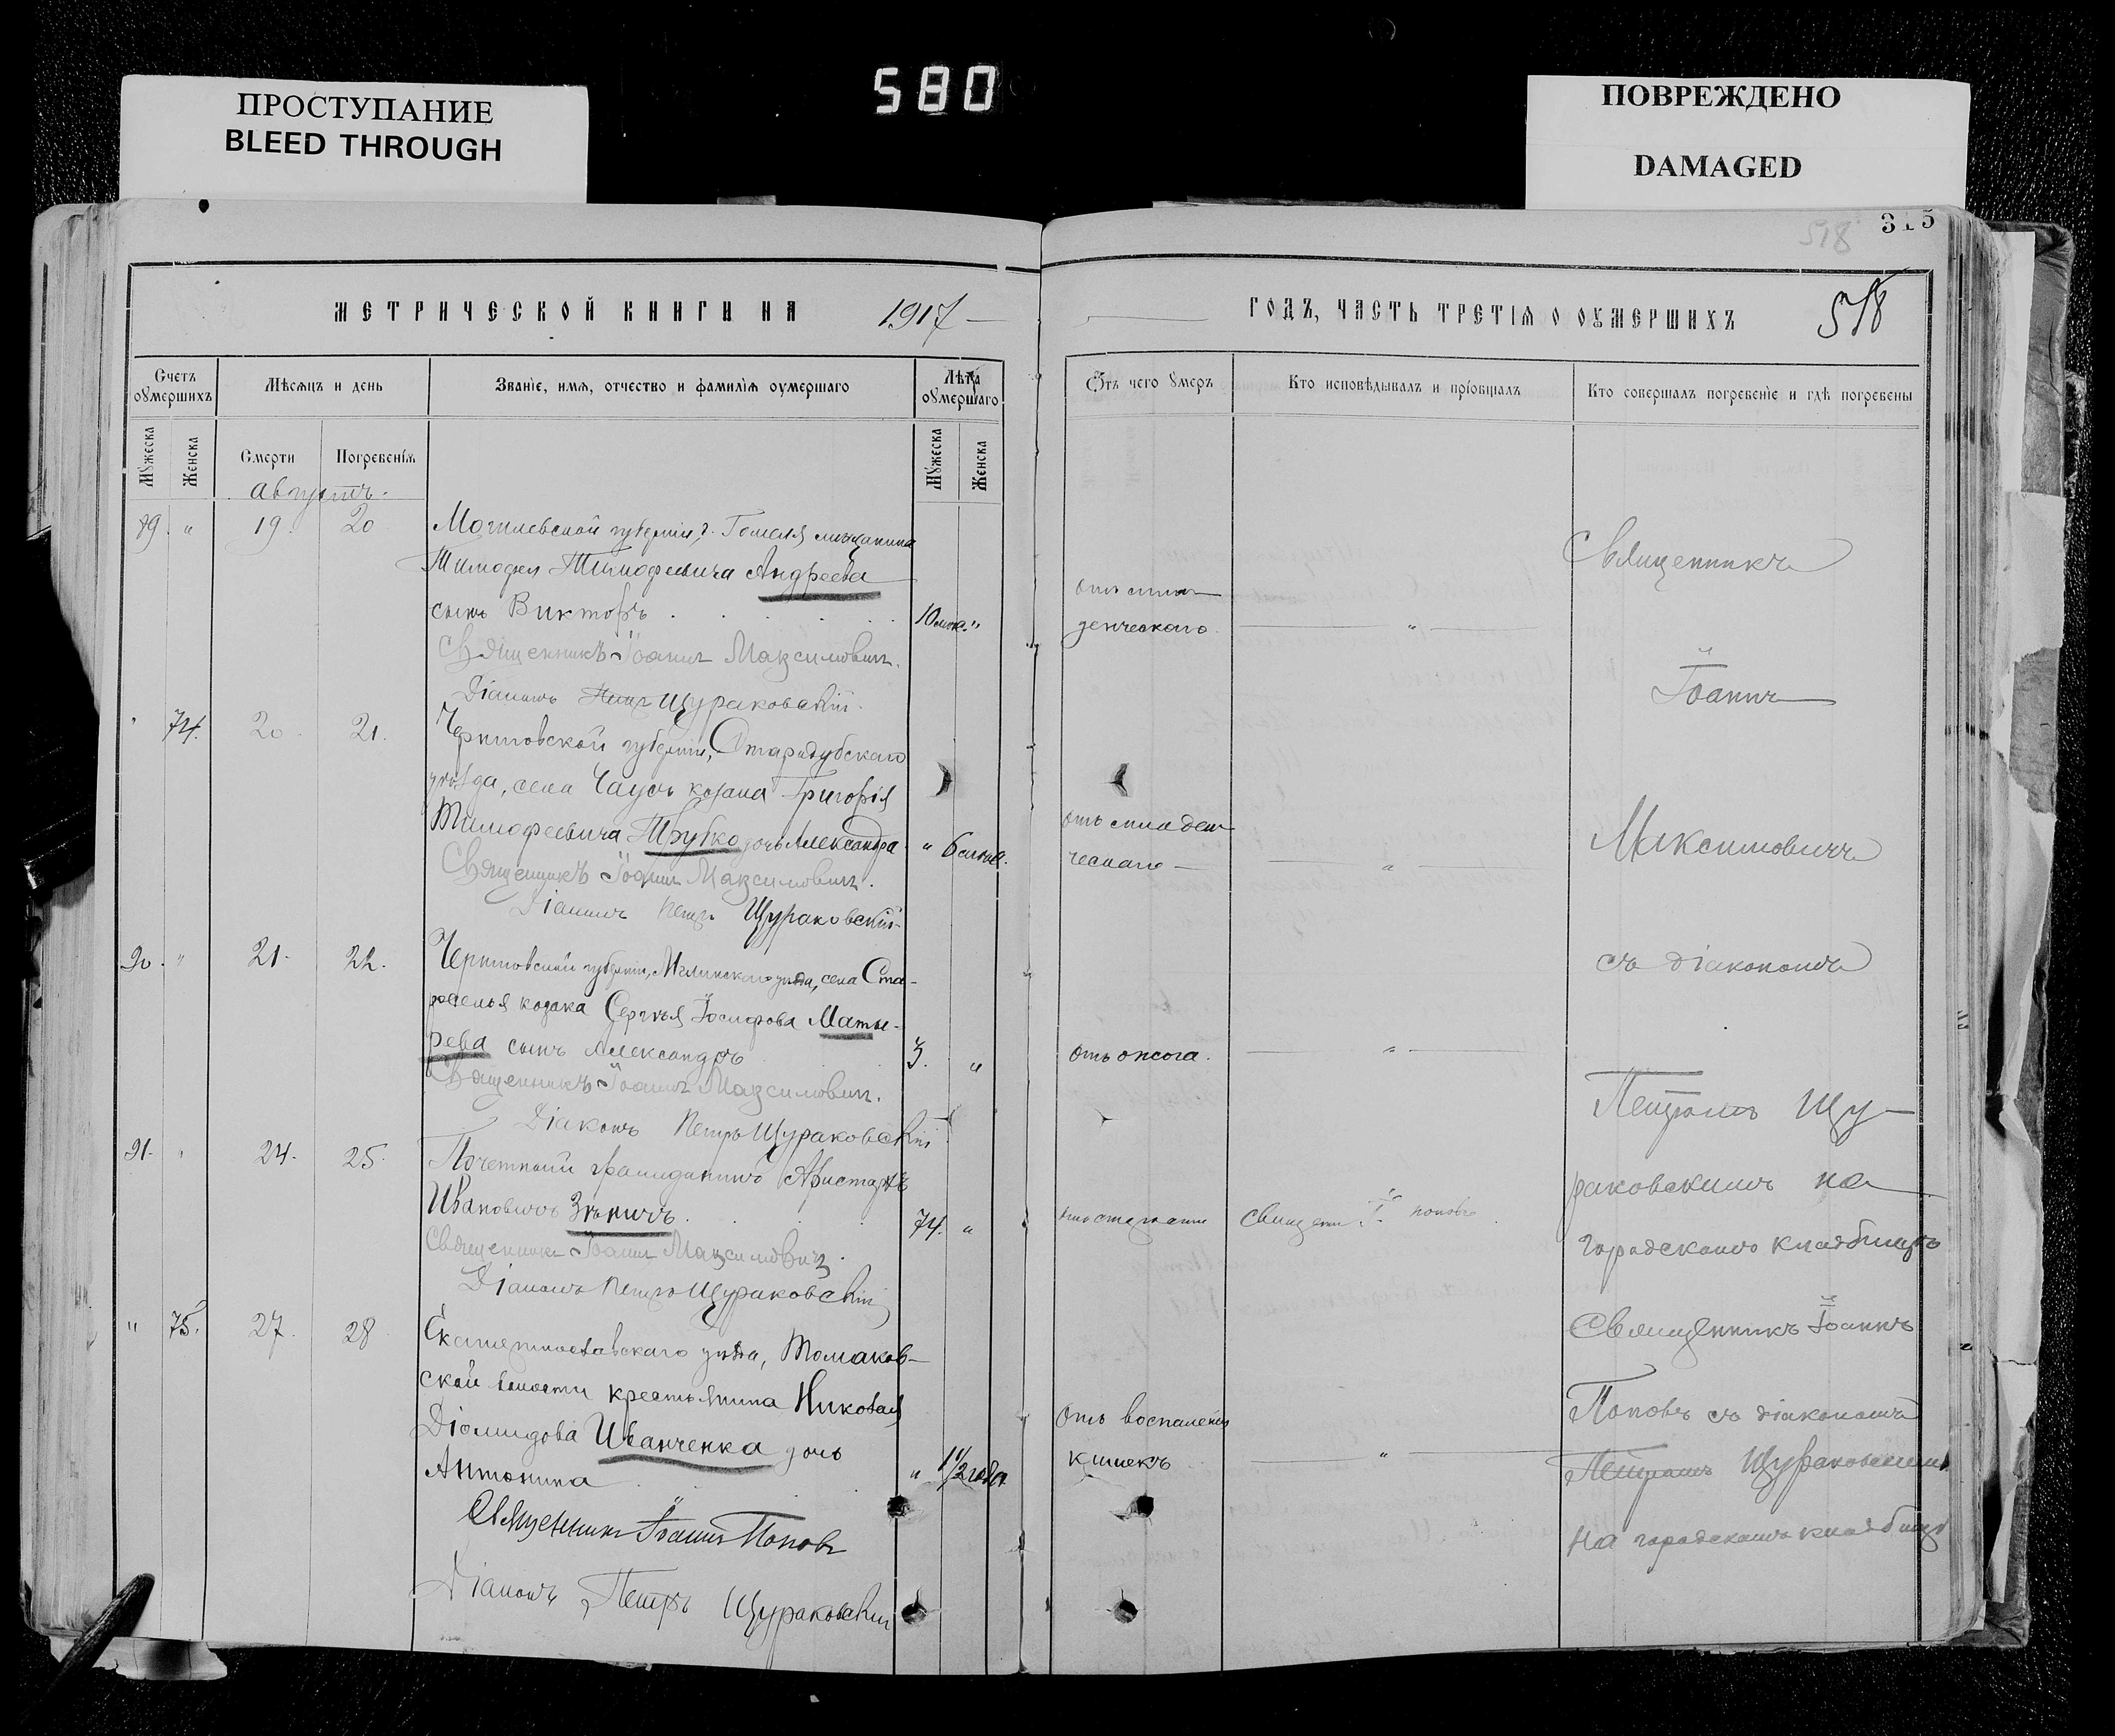 580
ПРОСТУПАНИЕ
BLEED THROUGH
ПОВРЕЖДЕНО
DAMAGED
518 315
МЕТРИЧЕСКОЙ КНИГИ НА 1917
ГОДЪ, ЧАСТЬ ТРЕТІЯ О ОУМЕРШИХЪ 518
Счетъ оумершихъ
Мѣсяцъ и день
Званіе, имя, отчество и фамилія оумершаго
Лѣта оумершаго
Отъ чего оумеръ
Кто исповѣдывалъ и пріобщалъ
Кто совершалъ погребеніе и гдѣ погребены
Мужеска
Женска
Смерти
Погребенія
Мужеска
Женска
августъ.
89 " 19. 20 Могилевской губерніи, г. Гомеля мѣщанина
Тимофея Тимофеевича Андреева
сынъ Викторъ 10 мѣс. "
отъ младенческаго "
Священникъ Іоаннъ Максимович.
Діаконъ Щураковскій.
" 74. 20. 21. Черниговской губерніи, Стародубскаго
уѣзда, села Чаусъ козака Григорія
Тимофеевича Трубко дочь Александра " 6 мѣсяц.
отъ младен-
ческаго "
Священникъ Іоаннъ Максимович.
Діаконъ Петръ Щураковскій
90. " 21. 22. Черниговской губерніи, Мглинскаго уѣзда, села Ста-
роселья козака Сергѣя Іосифова Маты-
рева сынъ Александръ 3. "
отъ ожога. "
Священникъ Іоаннъ Максимович.
Діаконъ Петръ Щураковскій
91. " 24. 25. Почетный гражданинъ Аристархъ
Ивановичъ 74. "
Священ. І. Поповъ
Священникъ Іоаннъ Максимович.
Діаконъ Петръ Щураковскій
" 75. 27. 28 Екатеринославскаго уѣзда, Томаков-
ской волости крестьянина Николая
Діомидова Иванченка дочь
Антонина " 1 1/2 года
Отъ воспаленія
кишекъ "
Священникъ Іоаннъ Попов
Діаконъ Петръ Щураковскій
Священникъ
Іоаннъ
Максимовичъ
съ діакономъ
Петромъ Щу-
раковскимъ на
городскомъ кладбищѣ
Священникъ Іоаннъ
Поповъ съ діакономъ
Петромъ Щураковскимъ
на городскомъ кладбищѣ